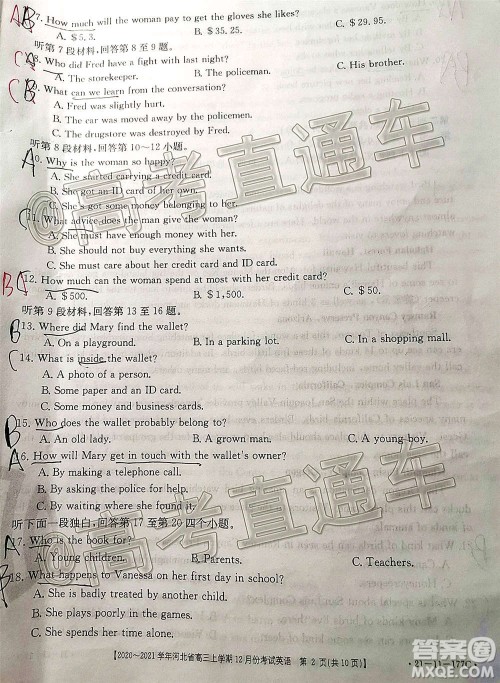 7. How much will the woman pay to get the gloves she likes?
A. $5.3. B. $35.25. C. $29.95.
听第7段材料,回答第8至9题。
8. Who did Fred have a fight with last night?
A. The storekeeper. B. The policeman. C. His brother.
9. What can we learn from the conversation?
A. Fred was slightly hurt.
B. The car was moved away by the policemen.
C. The drugstore was destroyed by Fred.
听第8段材料,回答第10~12小题。
10. Why is the woman so happy?
A. She started carrying a credit card.
B. She got an ID card of her own.
C. She's got some money belonging to her.
11. What advice does the man give the woman?
A. She must have enough money with her.
B. She should not buy everything she wants.
C. She must care about her credit card and ID card.
12. How much can the woman spend at most with her credit card?
A. $500. B. $1,500. C. $50.
听第9段材料,回答第13至16题。
13. Where did Mary find the wallet?
A. On a playground. B. In a parking lot. C. In a shopping mall.
14. What is inside the wallet?
A. A photo of a person.
B. Some paper and an ID card.
C. Some money and business cards.
15. Who does the wallet probably belong to?
A. An old lady. B. A grown man. C. A young boy.
16. How will Mary get in touch with the wallet's owner?
A. By making a telephone call.
B. By advertising in the paper.
C. By waiting where she found it.
听下面一段独白,回答第17至第20四个小题。
17. Who is the book for?
A. Young children. B. Parents. C. Teachers.
18. What happens to Vanessa on her first day in school?
A. She is badly treated by another child.
B. She plays poorly in the game.
C. She spends a lot of time alone.
【2020~2021学年河北省高三上学期12月份考试英语 第2页(共10页)】 ·21-11-177C·
@高考直通车
@高考直通车
答案圈
MXQE.COM